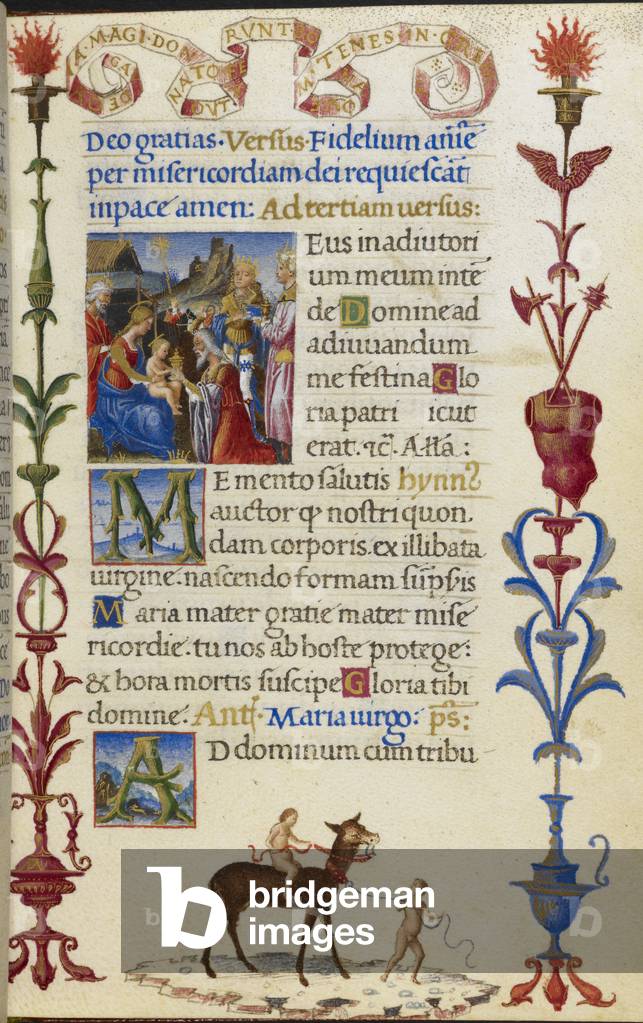 A·MAGI·DON RVNT· TENES·IN·
Deo gratias· Versus· Fidelium anīe
per misericordiam dei requiescāt
in pace amen: Ad tertiam uersus:
Eus in adiutori
um meum intē
de Domine ad
adiuuandum
me festina Glo
ria patri icut
erat. Alla:
Memento salutis hynn
auctor q nostri quon
dam corporis. ex illibata
uirgine. nascendo formam sūpsis
Maria mater gratie mater mise
ricordie. tu nos ab hoste protege:
& hora mortis suscipe Gloria tibi
domine. Anť· Maria uirgo: p̄s:
AD dominum cum tribu
b bridgeman
images